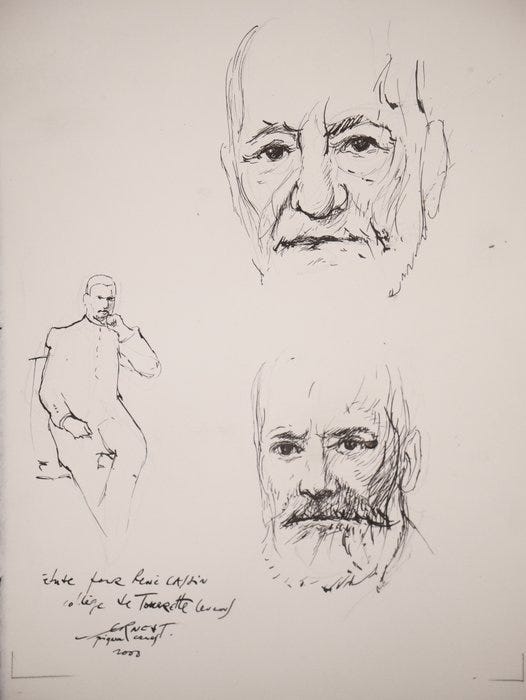 étude pour René CASSIN
collège de Tourrette Levens
ERNEST
pignon ernest
2000